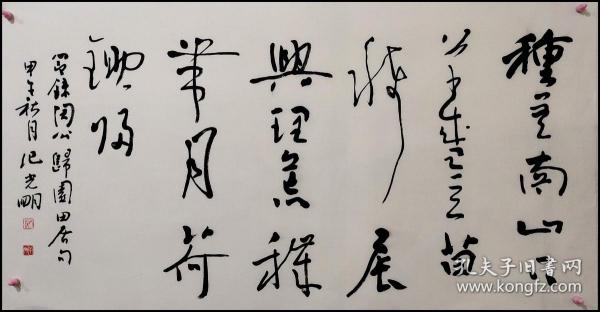 種豆南山下
草盛豆苗
稀晨
興理荒穢
帶月荷
鋤歸
節錄陶公歸園田居句
甲午秋月紀光明
孔夫子旧书网
www.kongfz.com